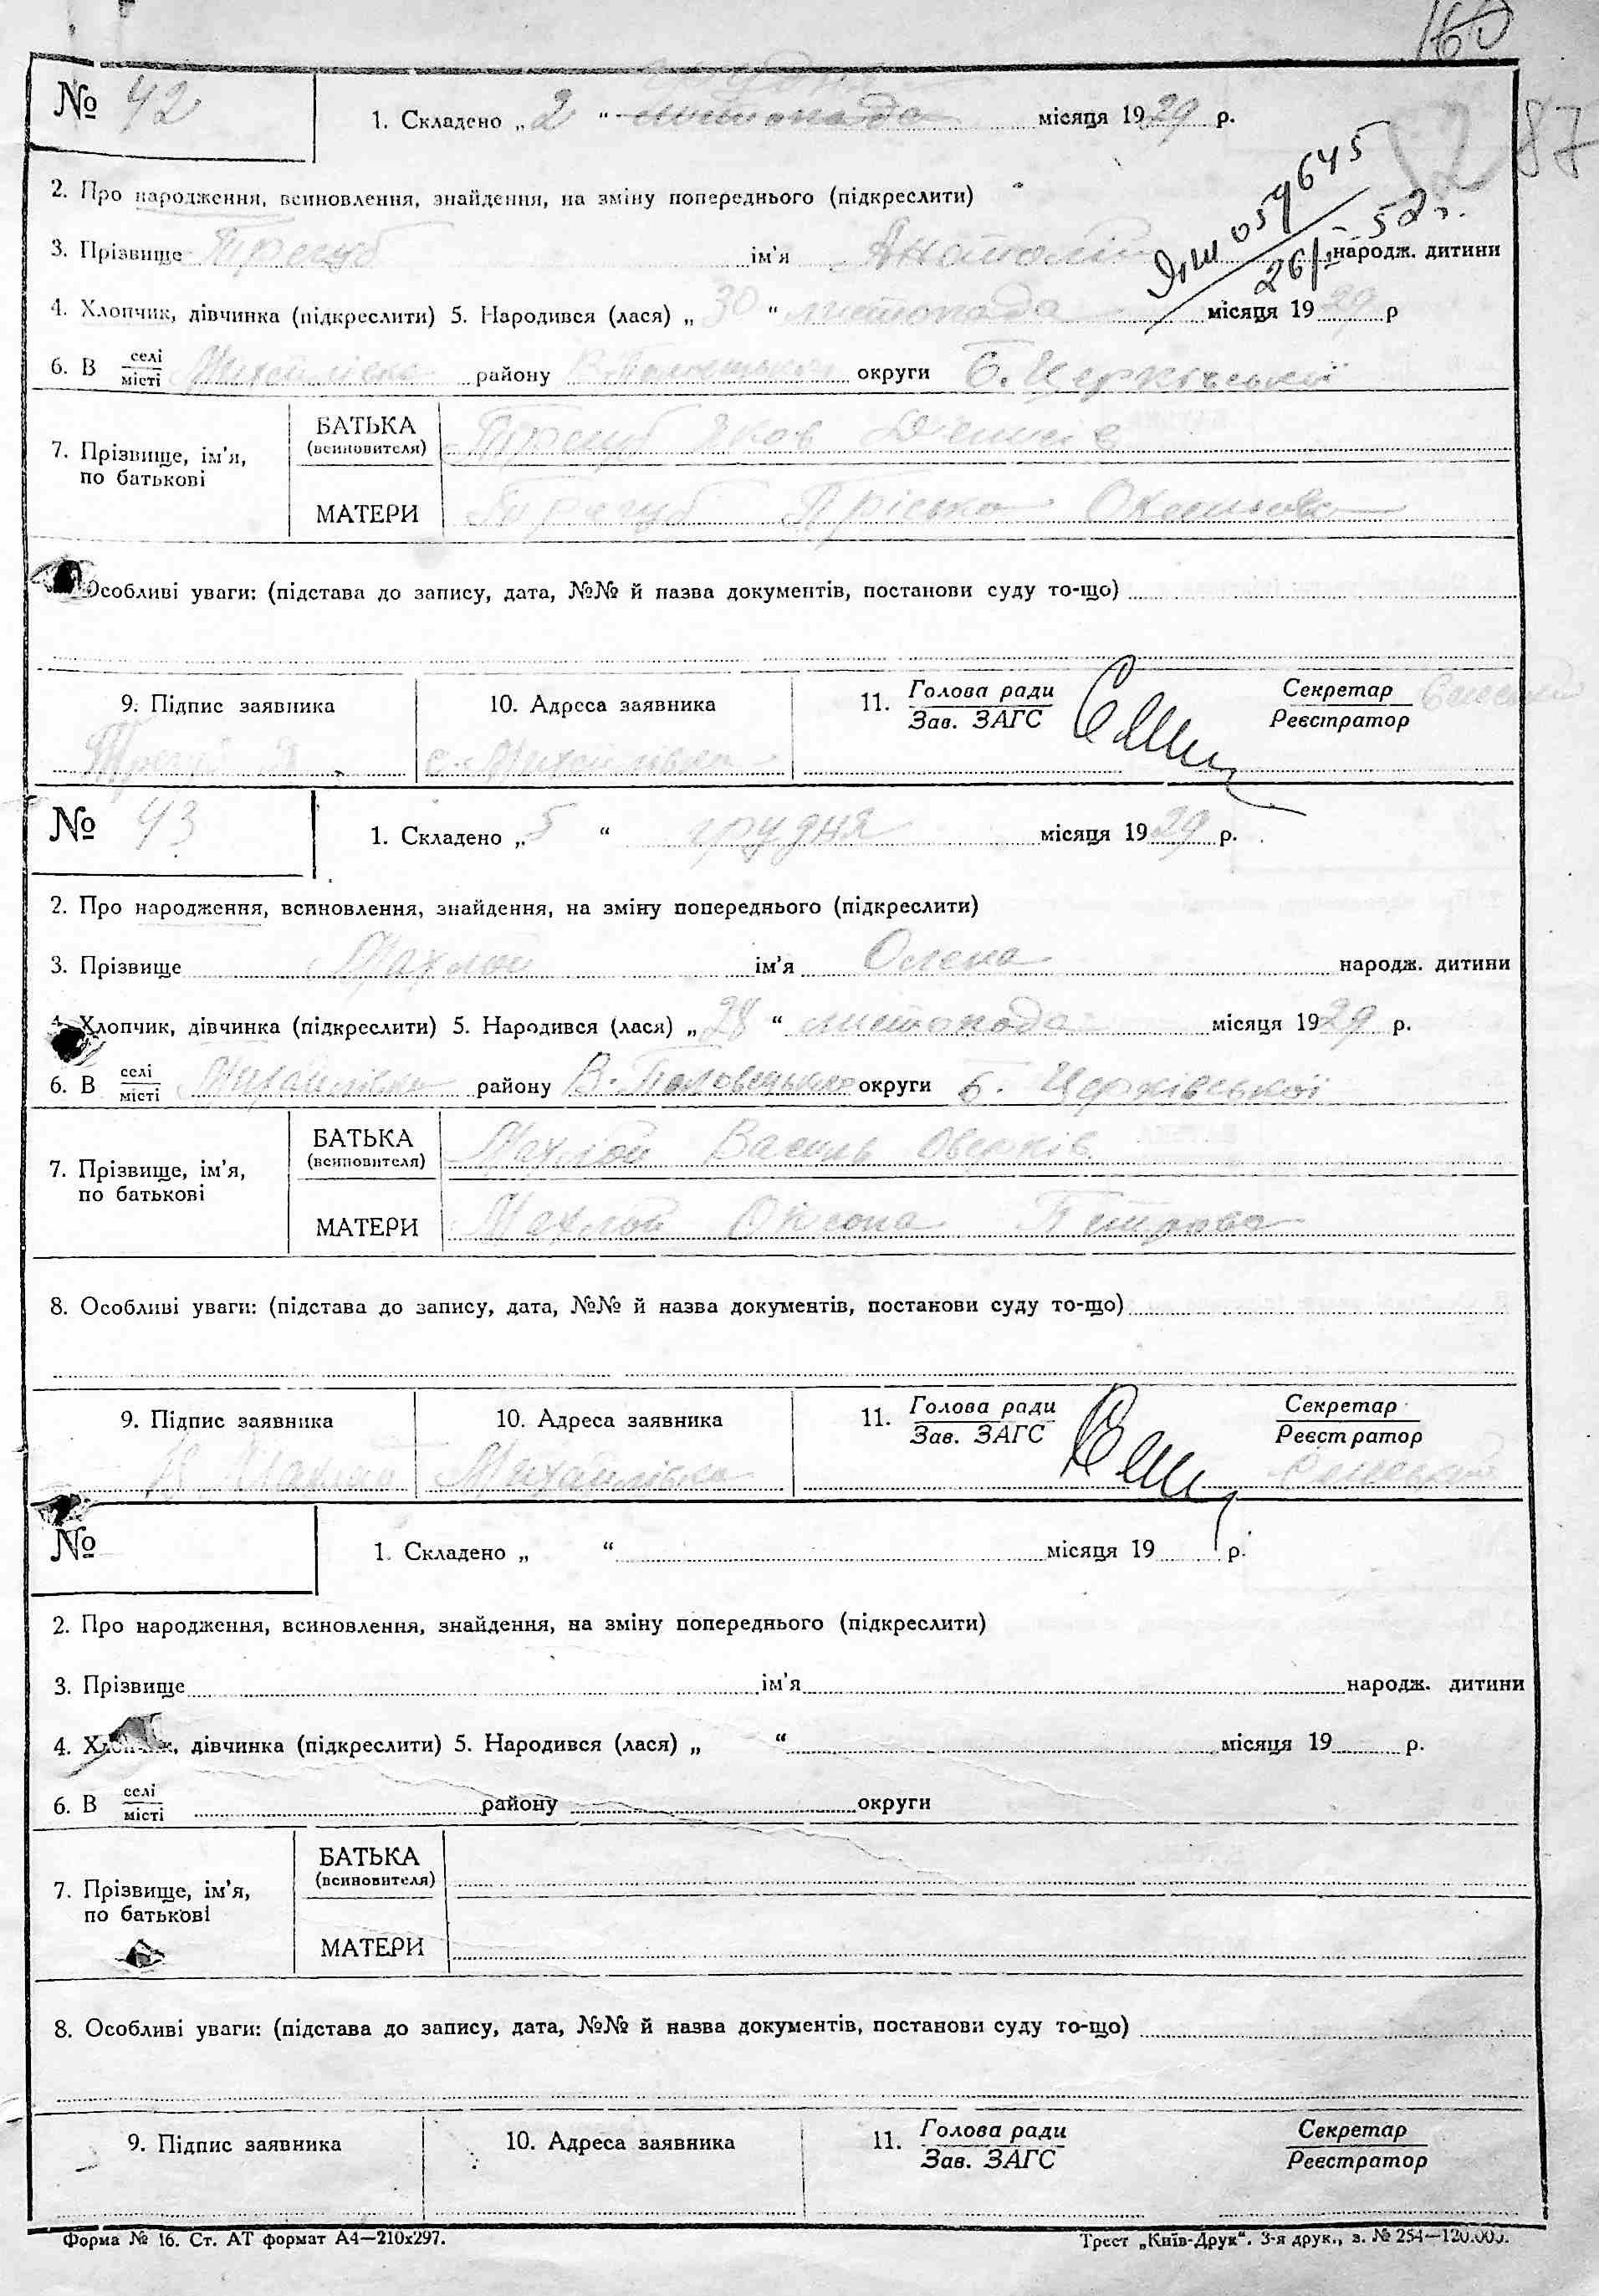 160
№ 42
1. Складено „ 2 “ листопада місяця 1929 р.
287
2. Про народження, всиновлення, знайдення, на зміну попереднього (підкреслити)
057645
3. Прізвище Трегуб ім'я Анатолій народж. дитини
4. Хлопчик, дівчинка (підкреслити) 5. Народився (лася) „ 30 “ листопада місяця 1929 р
6. В селі/місті Михайлівка району В. Половецького округи Б. Церківської
7. Прізвище, ім'я, по батькові
БАТЬКА (всиновителя) Трегуб Яков
МАТЕРИ Трегуб Пріська
Особливі уваги: (підстава до запису, дата, №№ й назва документів, постанови суду то-що)
9. Підпис заявника 10. Адреса заявника 11. Голова ради/Зав. ЗАГС Секретар/Реєстратор
Трегуб Я с. Михайлівка
№ 43
1. Складено „ 5 “ грудня місяця 1929 р.
2. Про народження, всиновлення, знайдення, на зміну попереднього (підкреслити)
3. Прізвище Махлай ім'я Олена народж. дитини
4. Хлопчик, дівчинка (підкреслити) 5. Народився (лася) „ 28 “ листопада місяця 1929 р.
6. В селі/місті Михайлівка району В. Половецького округи Б. Церківської
7. Прізвище, ім'я, по батькові
БАТЬКА (всиновителя) Махлай Василь Оверків
МАТЕРИ Махлай Оксана Петрова
8. Особливі уваги: (підстава до запису, дата, №№ й назва документів, постанови суду то-що)
9. Підпис заявника 10. Адреса заявника 11. Голова ради/Зав. ЗАГС Секретар/Реєстратор
В Махлай Михайлівка
№
1. Складено „ “ місяця 19 р.
2. Про народження, всиновлення, знайдення, на зміну попереднього (підкреслити)
3. Прізвище ім'я народж. дитини
4. Хлопчик, дівчинка (підкреслити) 5. Народився (лася) „ “ місяця 19 р.
6. В селі/місті району округи
7. Прізвище, ім'я, по батькові
БАТЬКА (всиновителя)
МАТЕРИ
8. Особливі уваги: (підстава до запису, дата, №№ й назва документів, постанови суду то-що)
9. Підпис заявника 10. Адреса заявника 11. Голова ради/Зав. ЗАГС Секретар/Реєстратор
Форма № 16. Ст. АТ формат А4—210х297. Трест „Київ-Друк“. 3-я друк., з. № 254—120.000.